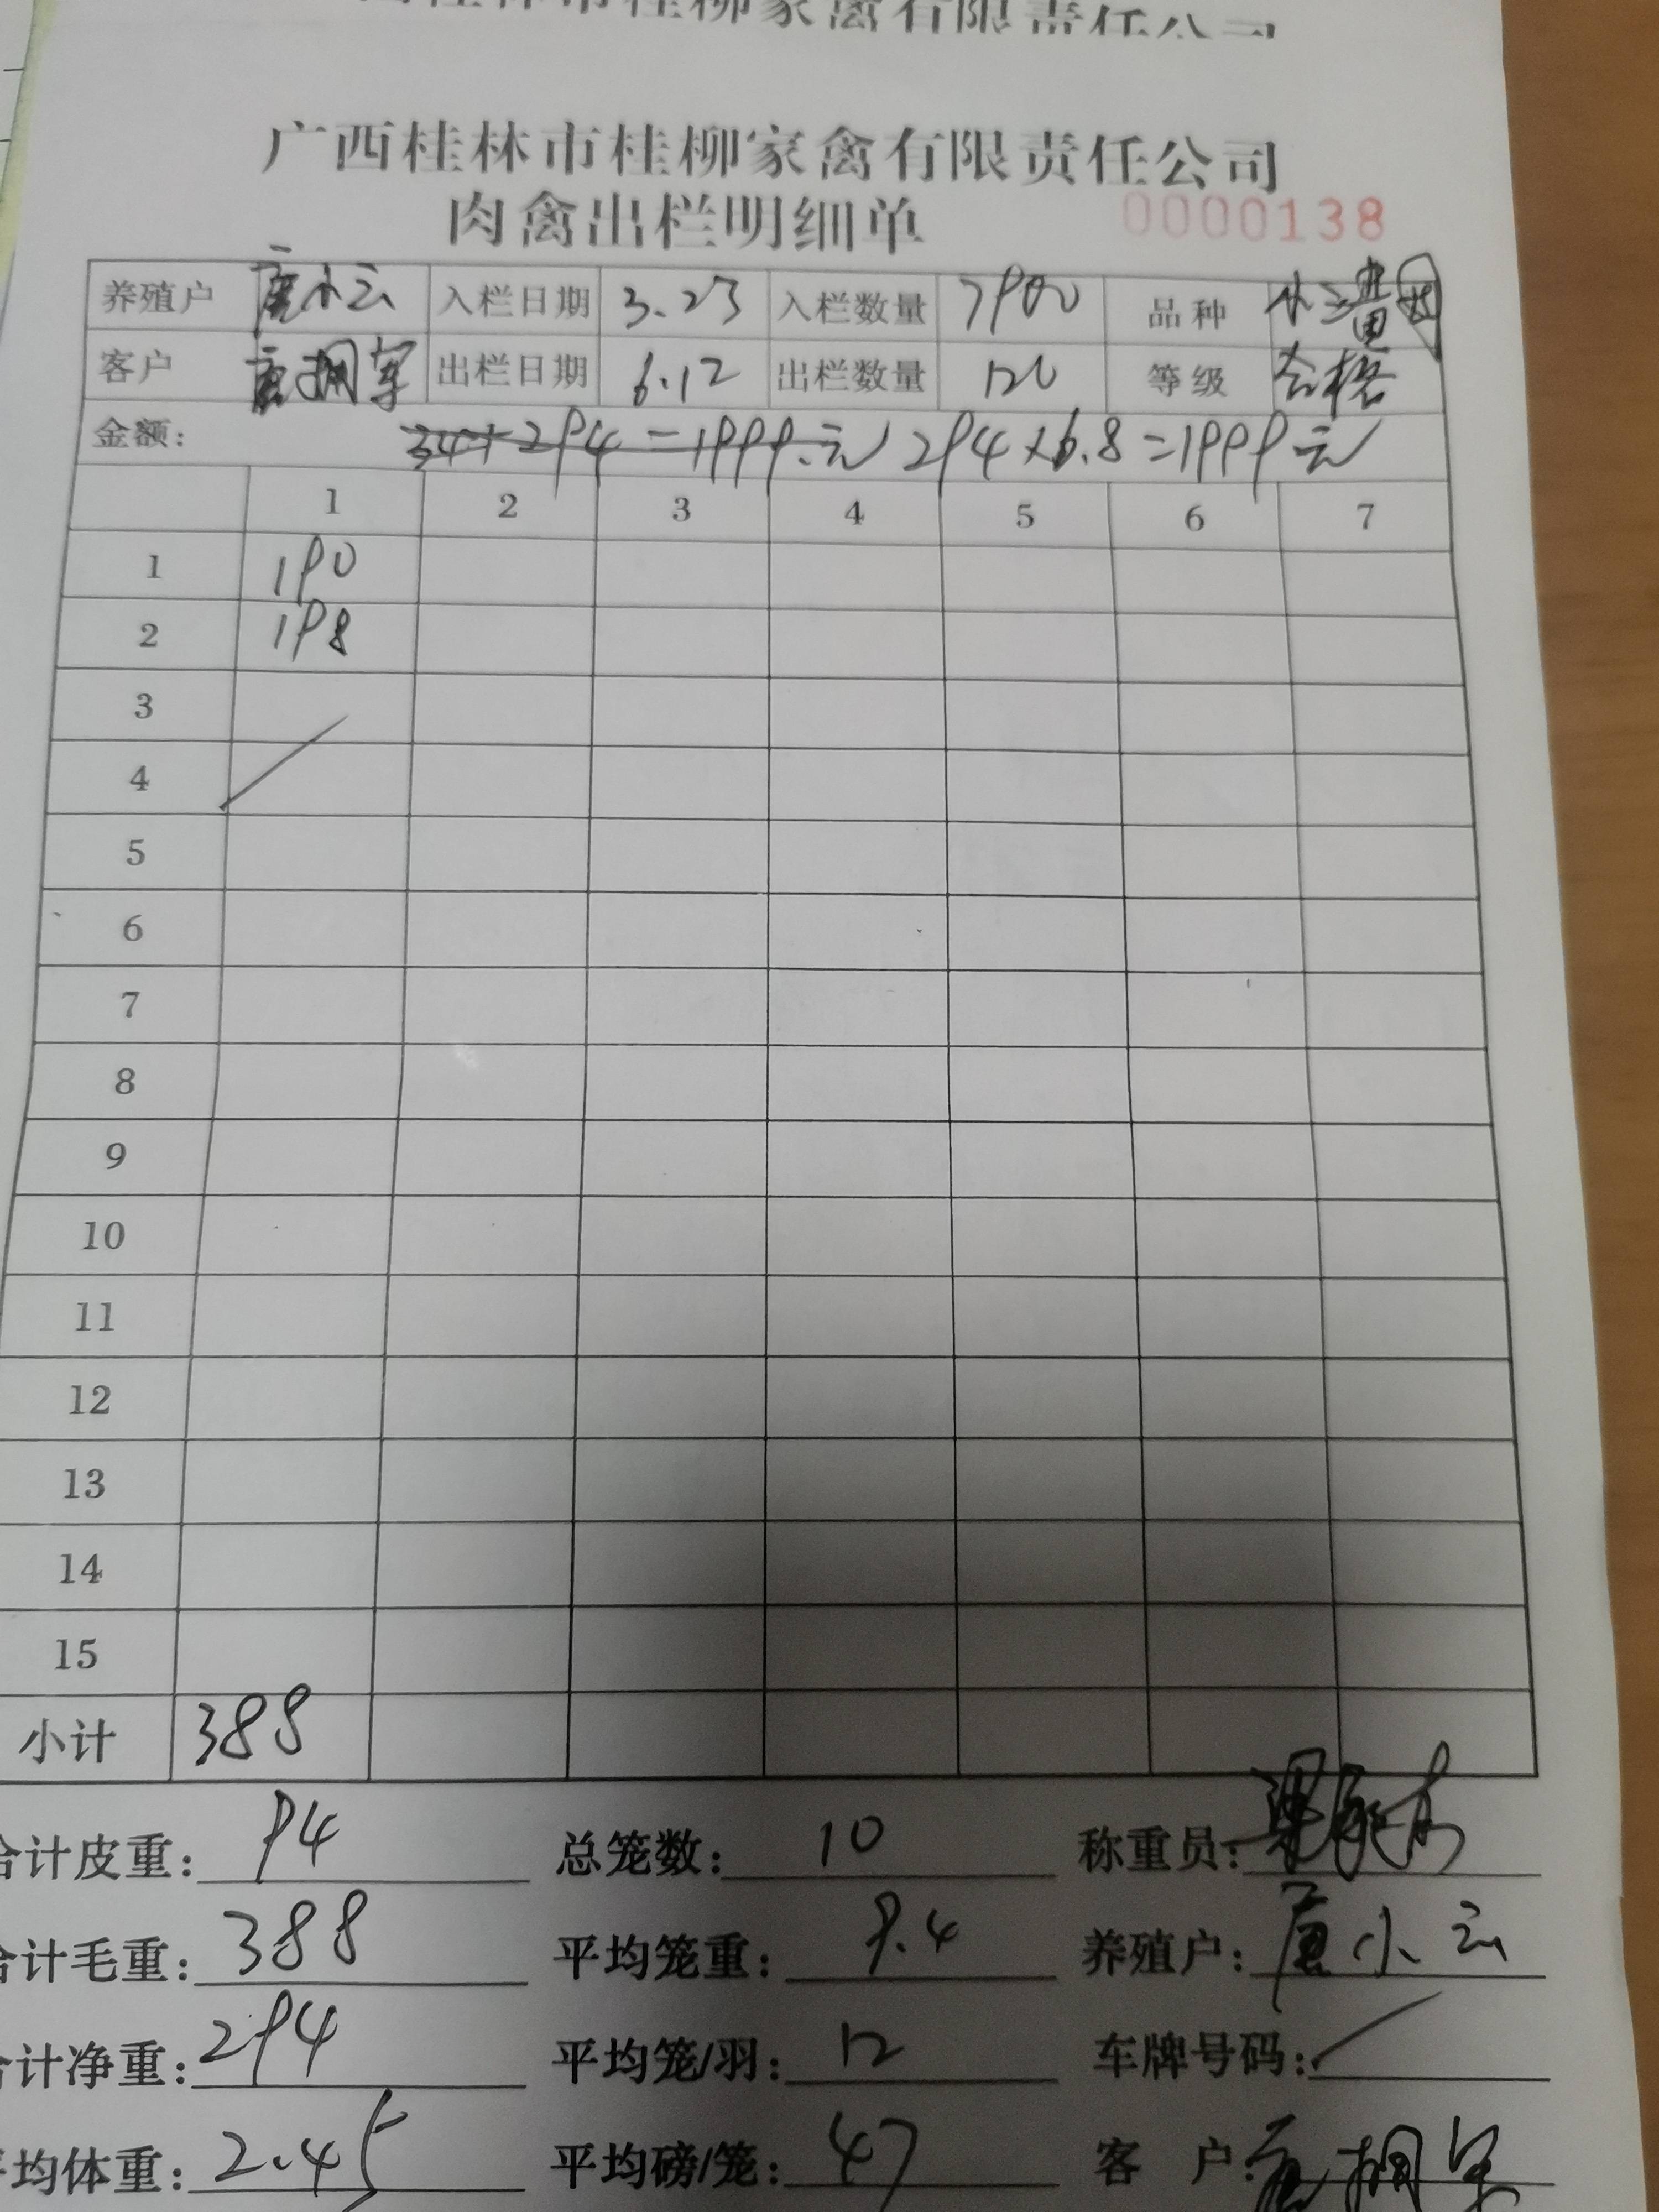 桂林市桂柳家禽有限责任公司
广西桂林市桂柳家禽有限责任公司
肉禽出栏明细单 0000138
养殖户 唐小云 入栏日期 3.23 入栏数量 7900 品种 小三黄
客户 唐拥军 出栏日期 6.12 出栏数量 120 等级 合格
金额: 294=1999.元 294×6.8=1999元
1 2 3 4 5 6 7
1 190
2 198
3
4
5
6
7
8
9
10
11
12
13
14
15
小计 388
合计皮重: 94 总笼数: 10 称重员:
合计毛重: 388 平均笼重: 9.4 养殖户: 唐小云
合计净重: 294 平均笼/羽: 12 车牌号码:
平均体重: 2.45 平均磅/笼: 47 客 户: 唐拥军